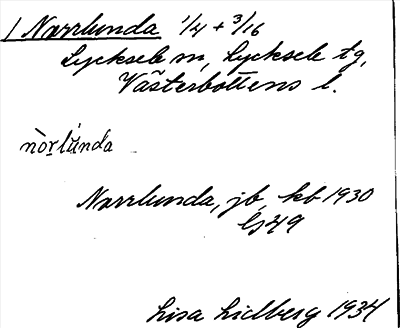 1 Norrlunda 1/4 + 3/16
Lycksele m, Lycksele tg,
Västerbottens l.
nòrlúnda
Norrlunda, jb, kb 1930
Lisa Lidberg 1934